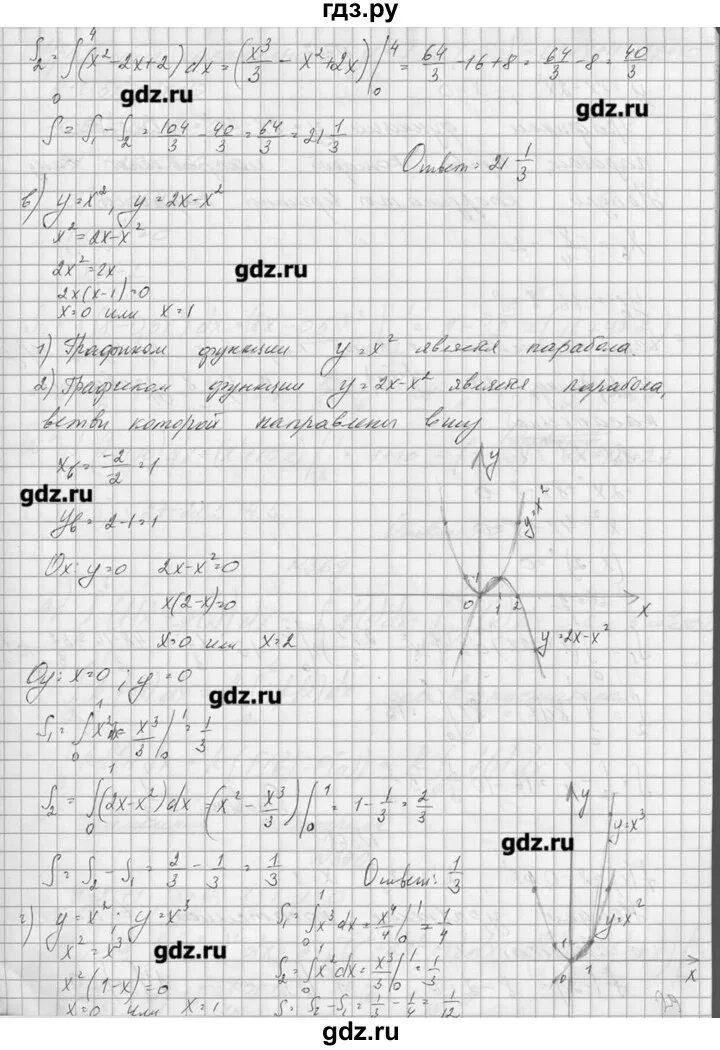 гдз.ру
S₂ = ∫₀⁴ (x² - 2x + 2) dx = (x³/3 - x² + 2x) |₀⁴ = 64/3 - 16 + 8 = 64/3 - 8 = 40/3
gdz.ru
gdz.ru
S = S₁ - S₂ = 104/3 - 40/3 = 64/3 = 21 1/3
Ответ: 21 1/3
в) y = x², y = 2x - x²
x² = 2x - x²
2x² = 2x
gdz.ru
2x(x-1) = 0
x = 0 или x = 1
1) Графиком функции y = x² является парабола.
2) Графиком функции y = 2x - x² является парабола,
ветви которой направлены вниз
xв = -2/-2 = 1
gdz.ru
yв = 2 - 1 = 1
Ox: y = 0 2x - x² = 0
x(2-x) = 0
x = 0 или x = 2
y
y=x²
1
0 1 2 x
y=2x-x²
Oy: x = 0; y = 0
gdz.ru
S₁ = ∫₀¹ x² dx = x³/3 |₀¹ = 1/3
S₂ = ∫₀¹ (2x - x²) dx = (x² - x³/3) |₀¹ = 1 - 1/3 = 2/3
gdz.ru
S = S₂ - S₁ = 2/3 - 1/3 = 1/3
Ответ: 1/3
г) y = x²; y = x³
x² = x³
gdz.ru
x²(1-x) = 0
x = 0 или x = 1
S₁ = ∫₀¹ x³ dx = x⁴/4 |₀¹ = 1/4
S₂ = ∫₀¹ x² dx = x³/3 |₀¹ = 1/3
S = S₂ - S₁ = 1/3 - 1/4 = 1/12
y
y=x³
y=x²
1
0 1 x
gdz.ru